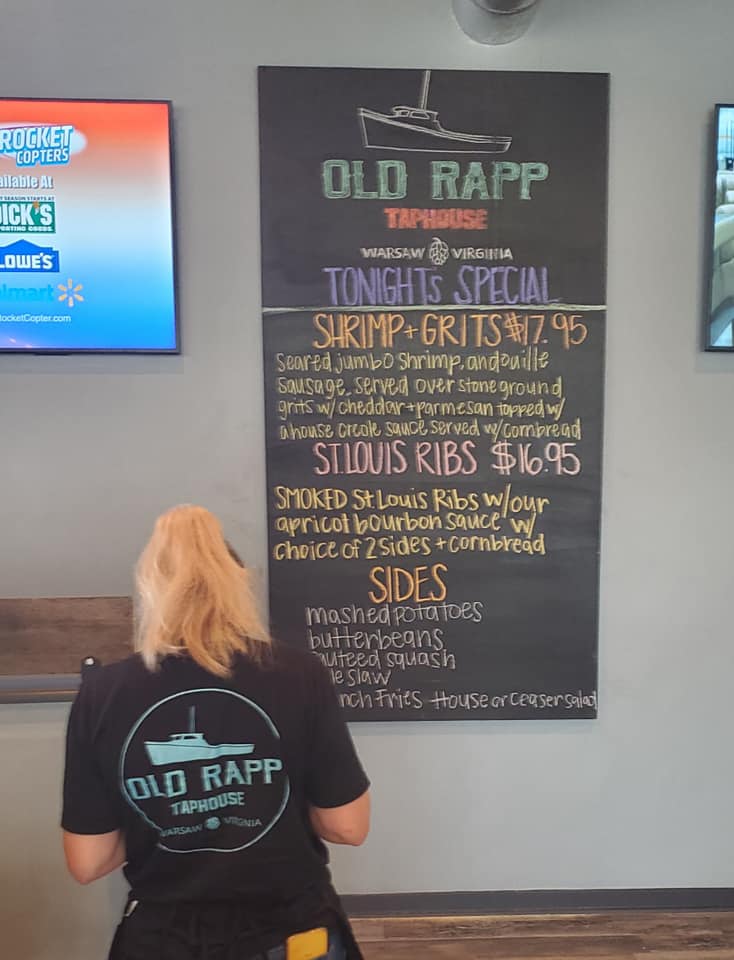 ROCKET
COPTERS
ailable At
SEASON STARTS AT
DICK'S
RTING GOODS
LOWE'S
lmart
RocketCopter.com
OLD RAPP
TAPHOUSE
WARSAW VIRGINIA
TONIGHTS SPECIAL
SHRIMP + GRITS $17.95
seared jumbo shrimp, andouille
sausage served over stone ground
grits w/ cheddar + parmesan topped w/
a house creole sauce served w/ cornbread
ST. LOUIS RIBS $16.95
SMOKED St. Louis Ribs w/ our
apricot bourbon sauce w/
choice of 2 sides + cornbread
SIDES
mashed potatoes
butterbeans
auteed squash
le slaw
nch Fries House or Ceaser salad
OLD RAPP
TAPHOUSE
WARSAW VIRGINIA